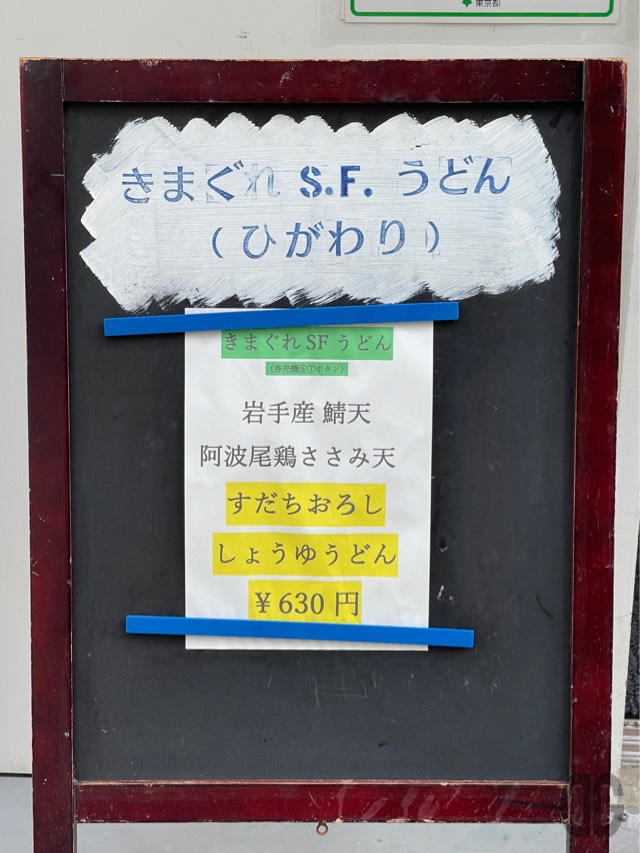 東京都
きまぐれ S.F. うどん
(ひがわり)
きまぐれSFうどん
(券売機⑥⑦ボタン)
岩手産 鯖天
阿波尾鶏ささみ天
すだちおろし
しょうゆうどん
¥630円